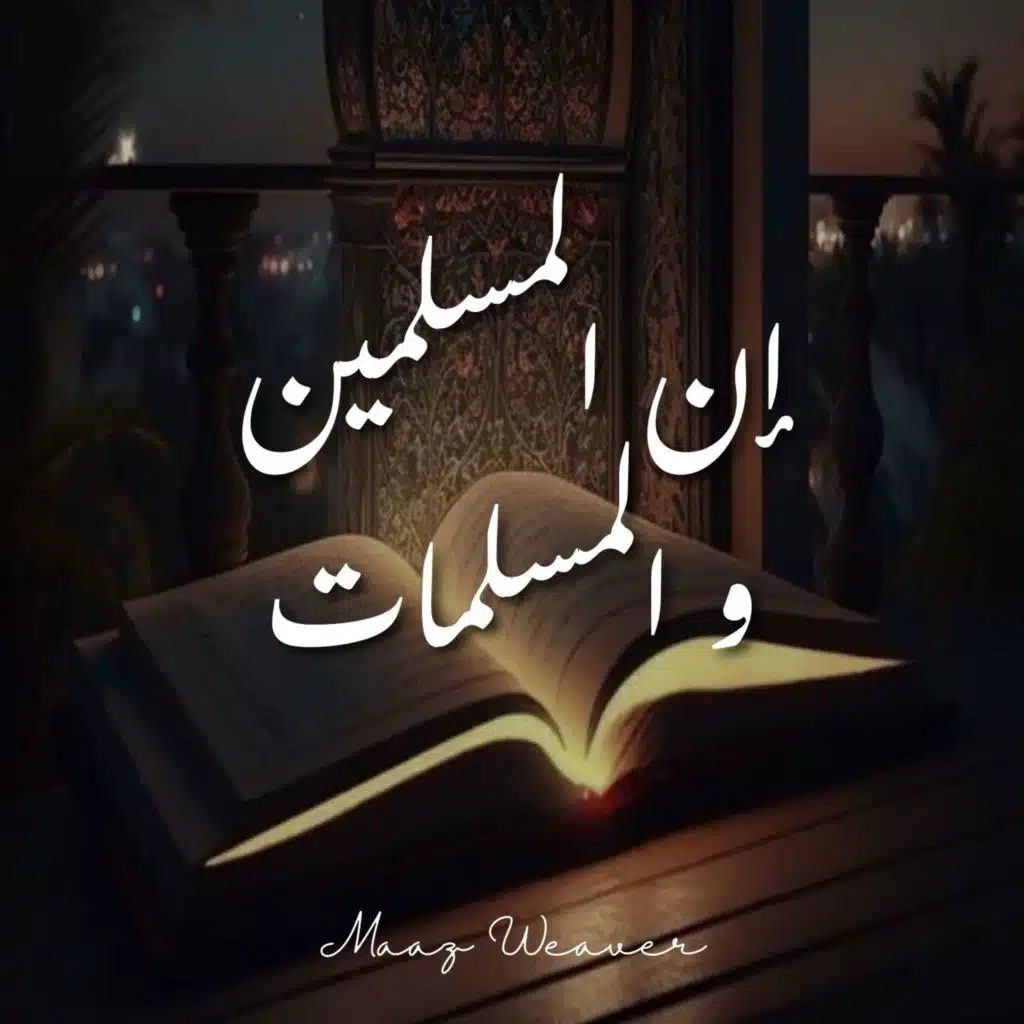 إن المسلمين
والمسلمات
Maaz Weaver